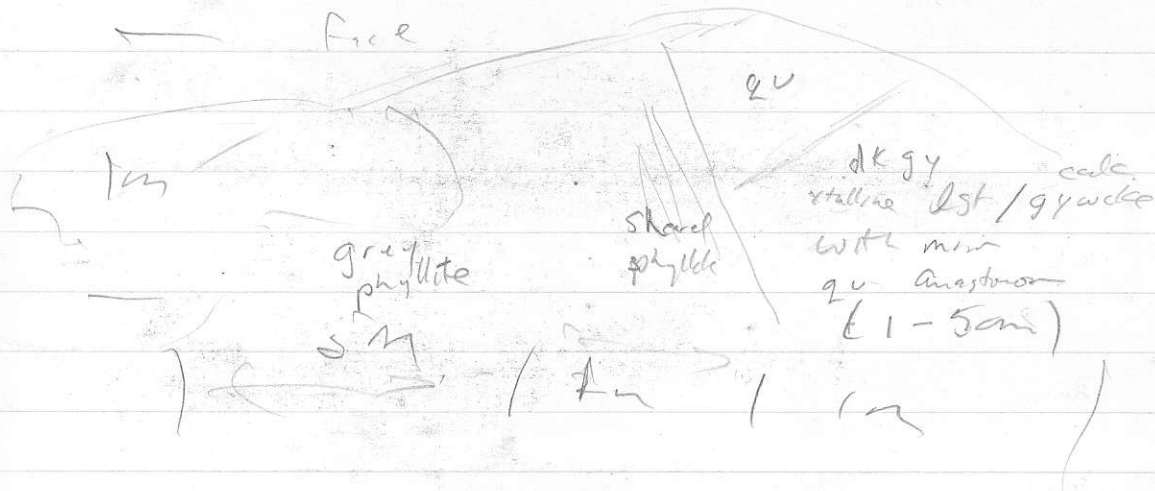 Face
qv
1m
dk gy calc
xtalline lst / gywcke
with minr
qv anastomos
(1 - 5cm)
shared
phyllite
grey
phyllite
5m
1m
1m